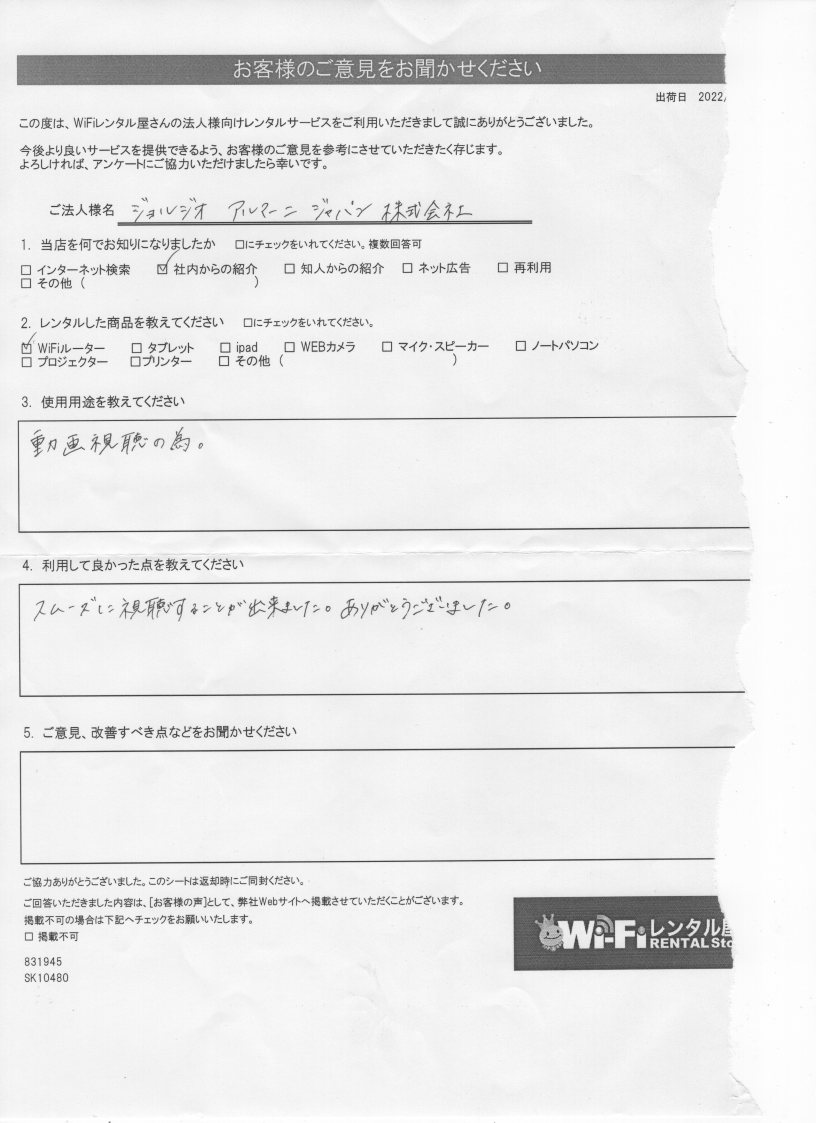 お客様のご意見をお聞かせください
出荷日 2022/
この度は、WiFiレンタル屋さんの法人様向けレンタルサービスをご利用いただきまして誠にありがとうございました。
今後より良いサービスを提供できるよう、お客様のご意見を参考にさせていただきたく存じます。
よろしければ、アンケートにご協力いただけましたら幸いです。
ご法人様名 ジョルジオ アルマーニ ジャパン 株式会社
1. 当店を何でお知りになりましたか □にチェックをいれてください。複数回答可
□ インターネット検索 ☑ 社内からの紹介 □ 知人からの紹介 □ ネット広告 □ 再利用
□ その他 ( )
2. レンタルした商品を教えてください □にチェックをいれてください。
☑ WiFiルーター □ タブレット □ ipad □ WEBカメラ □ マイク・スピーカー □ ノートパソコン
□ プロジェクター □プリンター □ その他 ( )
3. 使用用途を教えてください
動画視聴の為。
4. 利用して良かった点を教えてください
スムーズに視聴することが出来ました。ありがとうございました。
5. ご意見、改善すべき点などをお聞かせください
ご協力ありがとうございました。このシートは返却時にご同封ください。
ご回答いただきました内容は、[お客様の声]として、弊社Webサイトへ掲載させていただくことがございます。
掲載不可の場合は下記へチェックをお願いいたします。
□ 掲載不可
831945
SK10480
Wi-Fiレンタル屋
RENTAL Sto